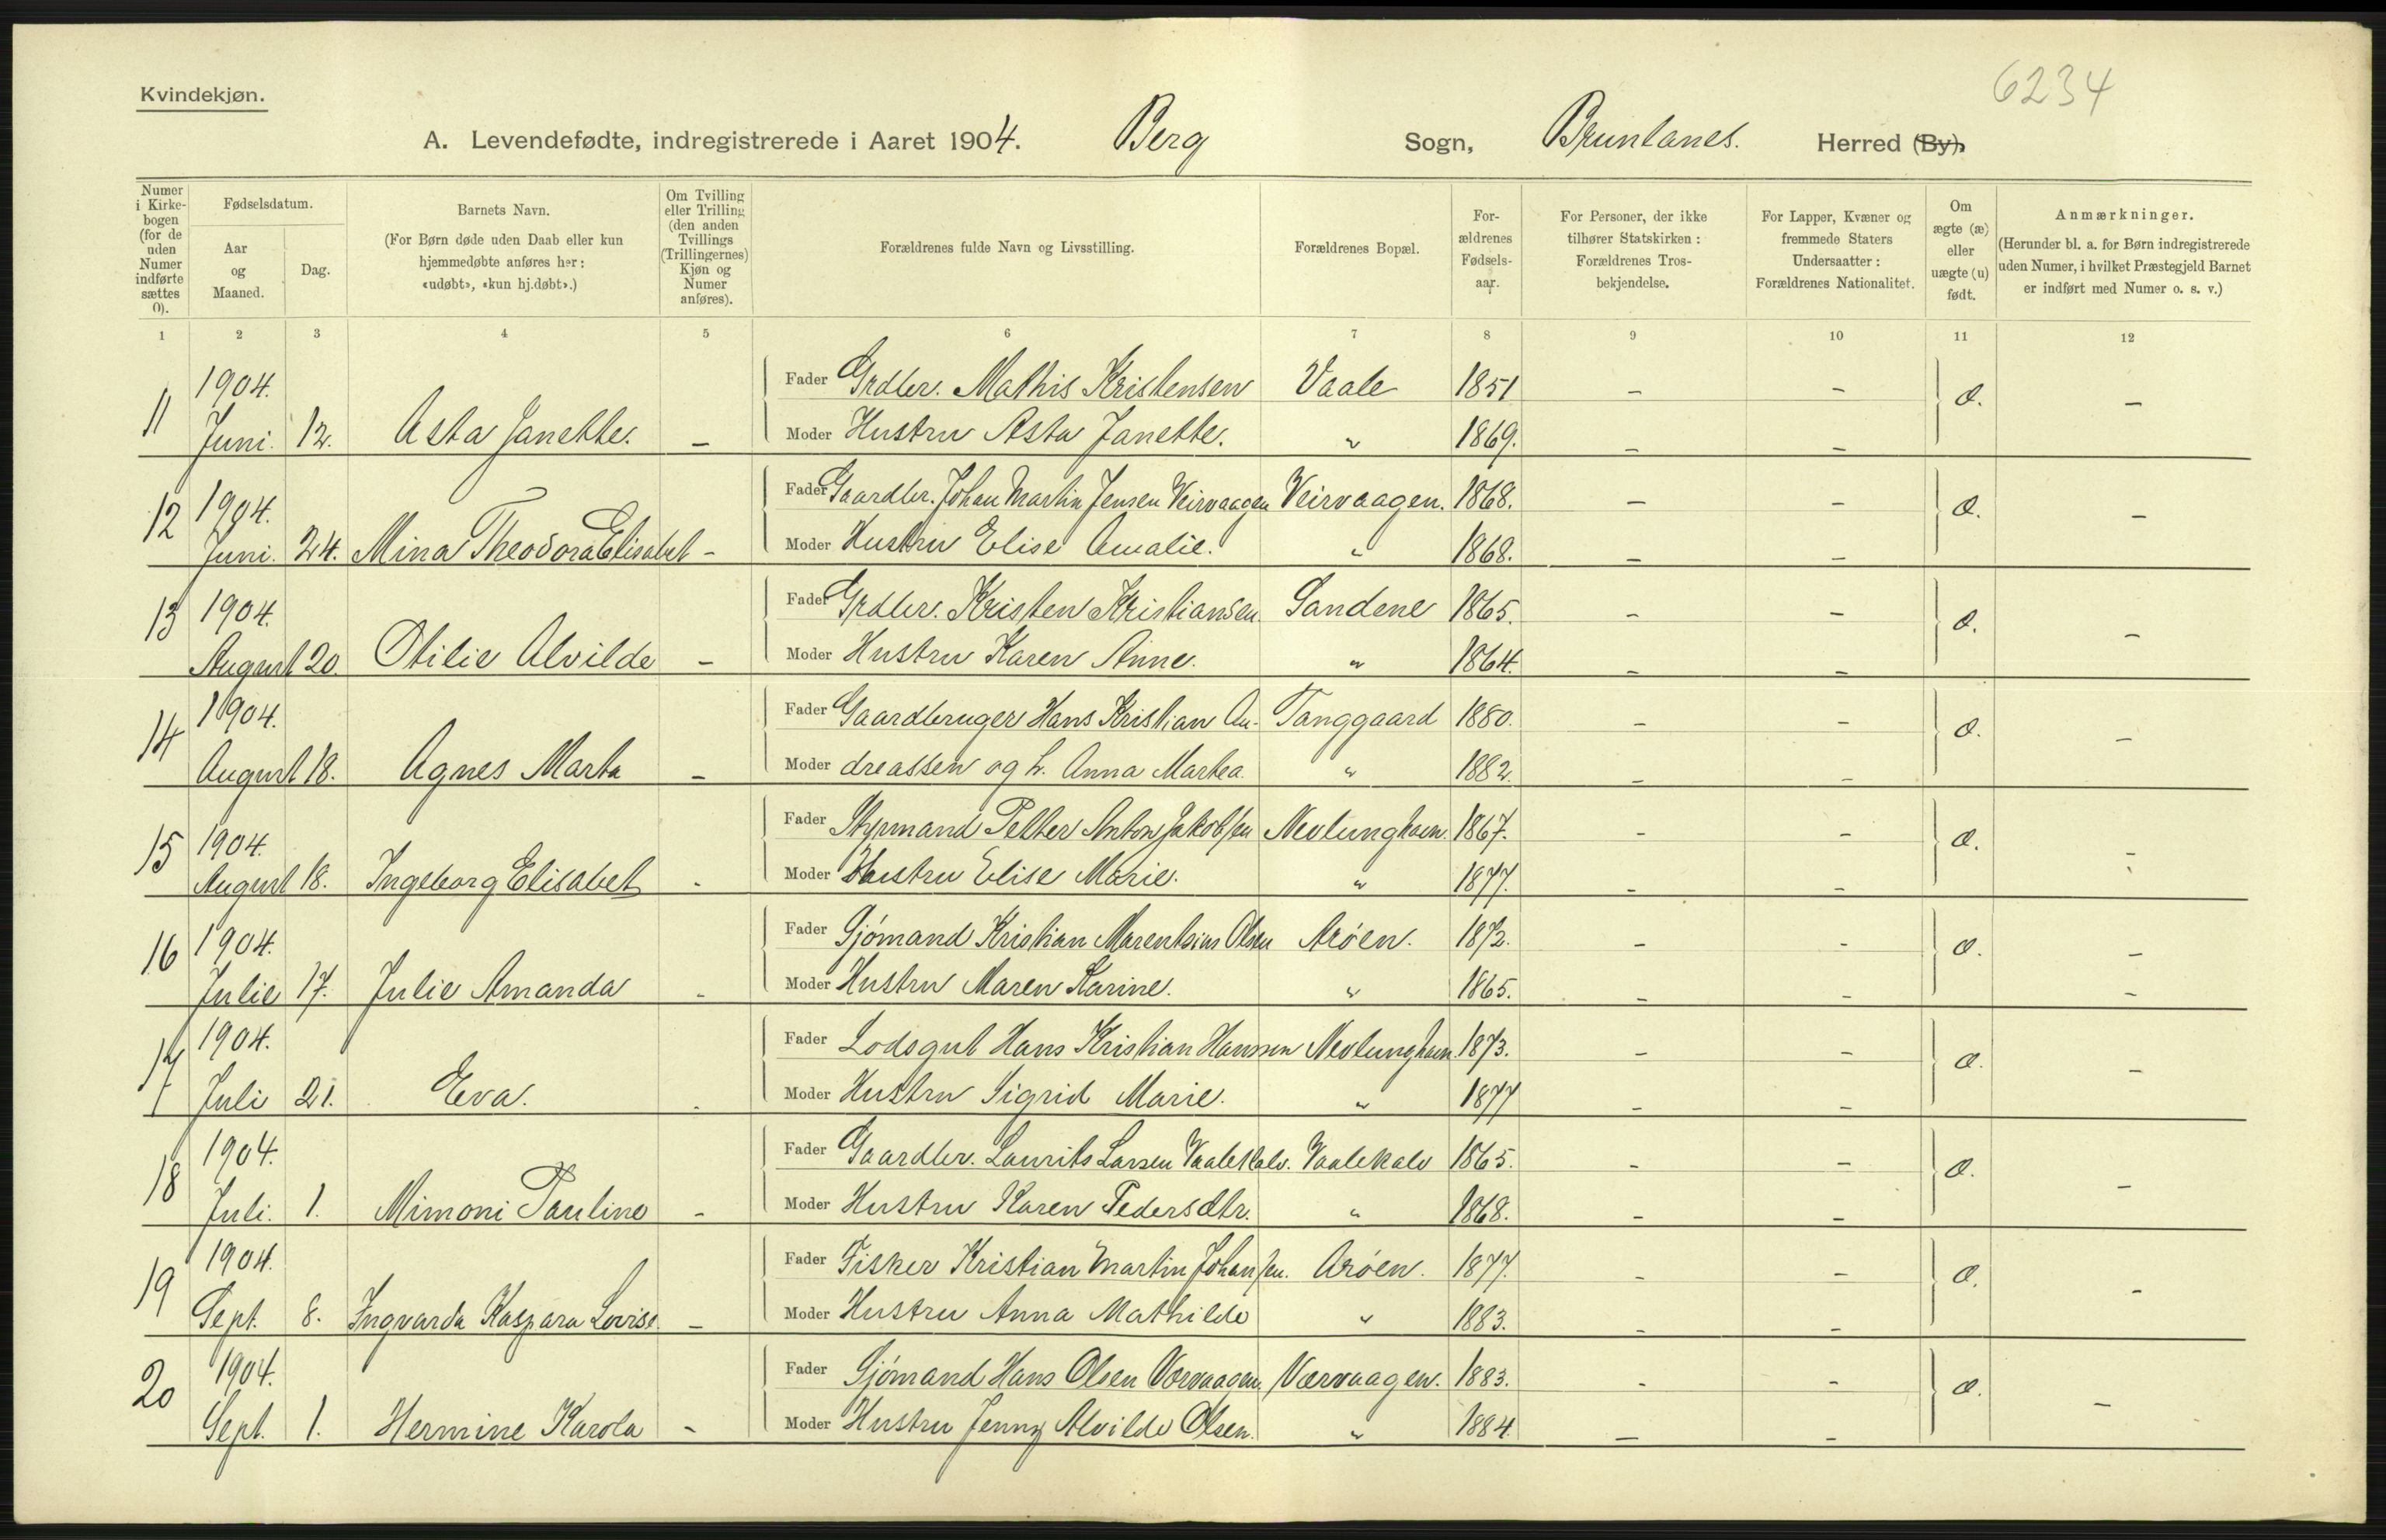 6234
Kvindekjøn.
A. Levendefødte, indregistrerede i Aaret 1904. Berg Sogn, Brunlanes. Herred (By).
Numer i Kirkebogen (for de uden Numer indførte sættes 0).
Fødselsdatum.
Aar og Maaned.
Dag.
Barnets Navn.
(For Børn døde uden Daab eller kun hjemmedøbte anføres her: «udøbt», «kun hj.døbt».)
Om Tvilling eller Trilling (den anden Tvillings (Trillingernes) Kjøn og Numer anføres).
Forældrenes fulde Navn og Livsstilling.
Forældrenes Bopæl.
Forældrenes Fødselsaar.
For Personer, der ikke tilhører Statskirken: Forældrenes Trosbekjendelse.
For Lapper, Kvæner og fremmede Staters Undersaatter: Forældrenes Nationalitet.
Om ægte (æ) eller uægte (u) født.
Anmærkninger.
(Herunder bl. a. for Børn indregistrerede uden Numer, i hvilket Præstegjeld Barnet er indført med Numer o. s. v.)
1 2 3 4 5 6 7 8 9 10 11 12
11 1904. Fader Grdbr. Mathis Kristensen Vaale 1851 – – æ. –
Juni. 12. Asta Janette. – Moder Hustru Asta Janette. " 1869. – –
12 1904. Fader Gaardbr. Johan Martin Jensen Veirvaagen Veirvaagen. 1868. – – æ. –
Juni. 24. Mina Theodora Elisabet – Moder Hustru Elise Amalie. " 1868. – –
13 1904. Fader Grdbr. Kristen Kristiansen. Sandene 1865. – – æ. –
August 20. Otilie Alvilde – Moder Hustru Karen Anne. " 1864. – –
14 1904. Fader Gaardbruger Hans Kristian An- Tanggaard 1880. – – æ. –
August 18. Agnes Marta – Moder dreassen og h. Anna Martea " 1882. – –
15 1904. Fader Styrmand Petter Anton Jakobsen Nevlunghavn. 1867. – – æ. –
August 18. Ingeborg Elisabet – Moder Hustru Elise Marie. " 1877. – –
16 1904. Fader Sjømand Kristian Marentsius Olsen Arøen. 1872. – – æ. –
Julie 17. Julie Amanda – Moder Hustru Maren Karine. " 1865. – – –
17 1904. Fader Lodsgut Hans Kristian Hansen Nevlunghavn. 1873. – – æ. –
Juli 21. Eva. – Moder Hustru Sigrid Marie. " 1877 – –
18 1904. Fader Gaardbr. Laurits Larsen Vaalekalv. Vaalekalv 1865. – – æ. –
Juli. 1. Mimoni Pauline – Moder Hustru Karen Pedersdtr. " 1868. – –
19 1904. Fader Fisker Kristian Martin Johansen. Arøen. 1877. – – æ. –
Sept. 8. Ingvarda Kaspara Lovise. – Moder Hustru Anna Mathilde " 1883. – –
20 1904. Fader Sjømand Hans Olsen Værvaagen Værvaagen. 1883. – – æ. –
Sept. 1. Hermine Karola – Moder Hustru Jenny Alvilde Olsen. " 1884. – –